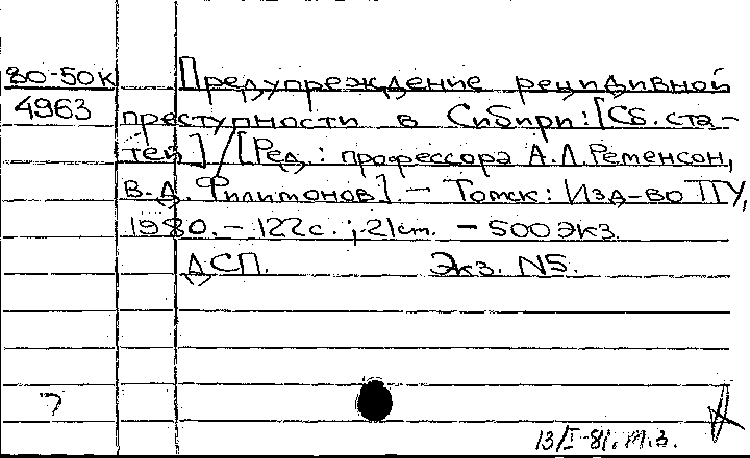 80-50к Предупреждение рецидивной
4963 преступности в Сибири: [Сб. ста-
тей] / [Ред.: профессора А.Л. Ременсон,
В.Д. Филимонов]. – Томск: Изд-во ТГУ,
1980. – 122с.; 21ст. – 500экз.
ДСП. Экз. N5.
7
13/I-81. т.з.